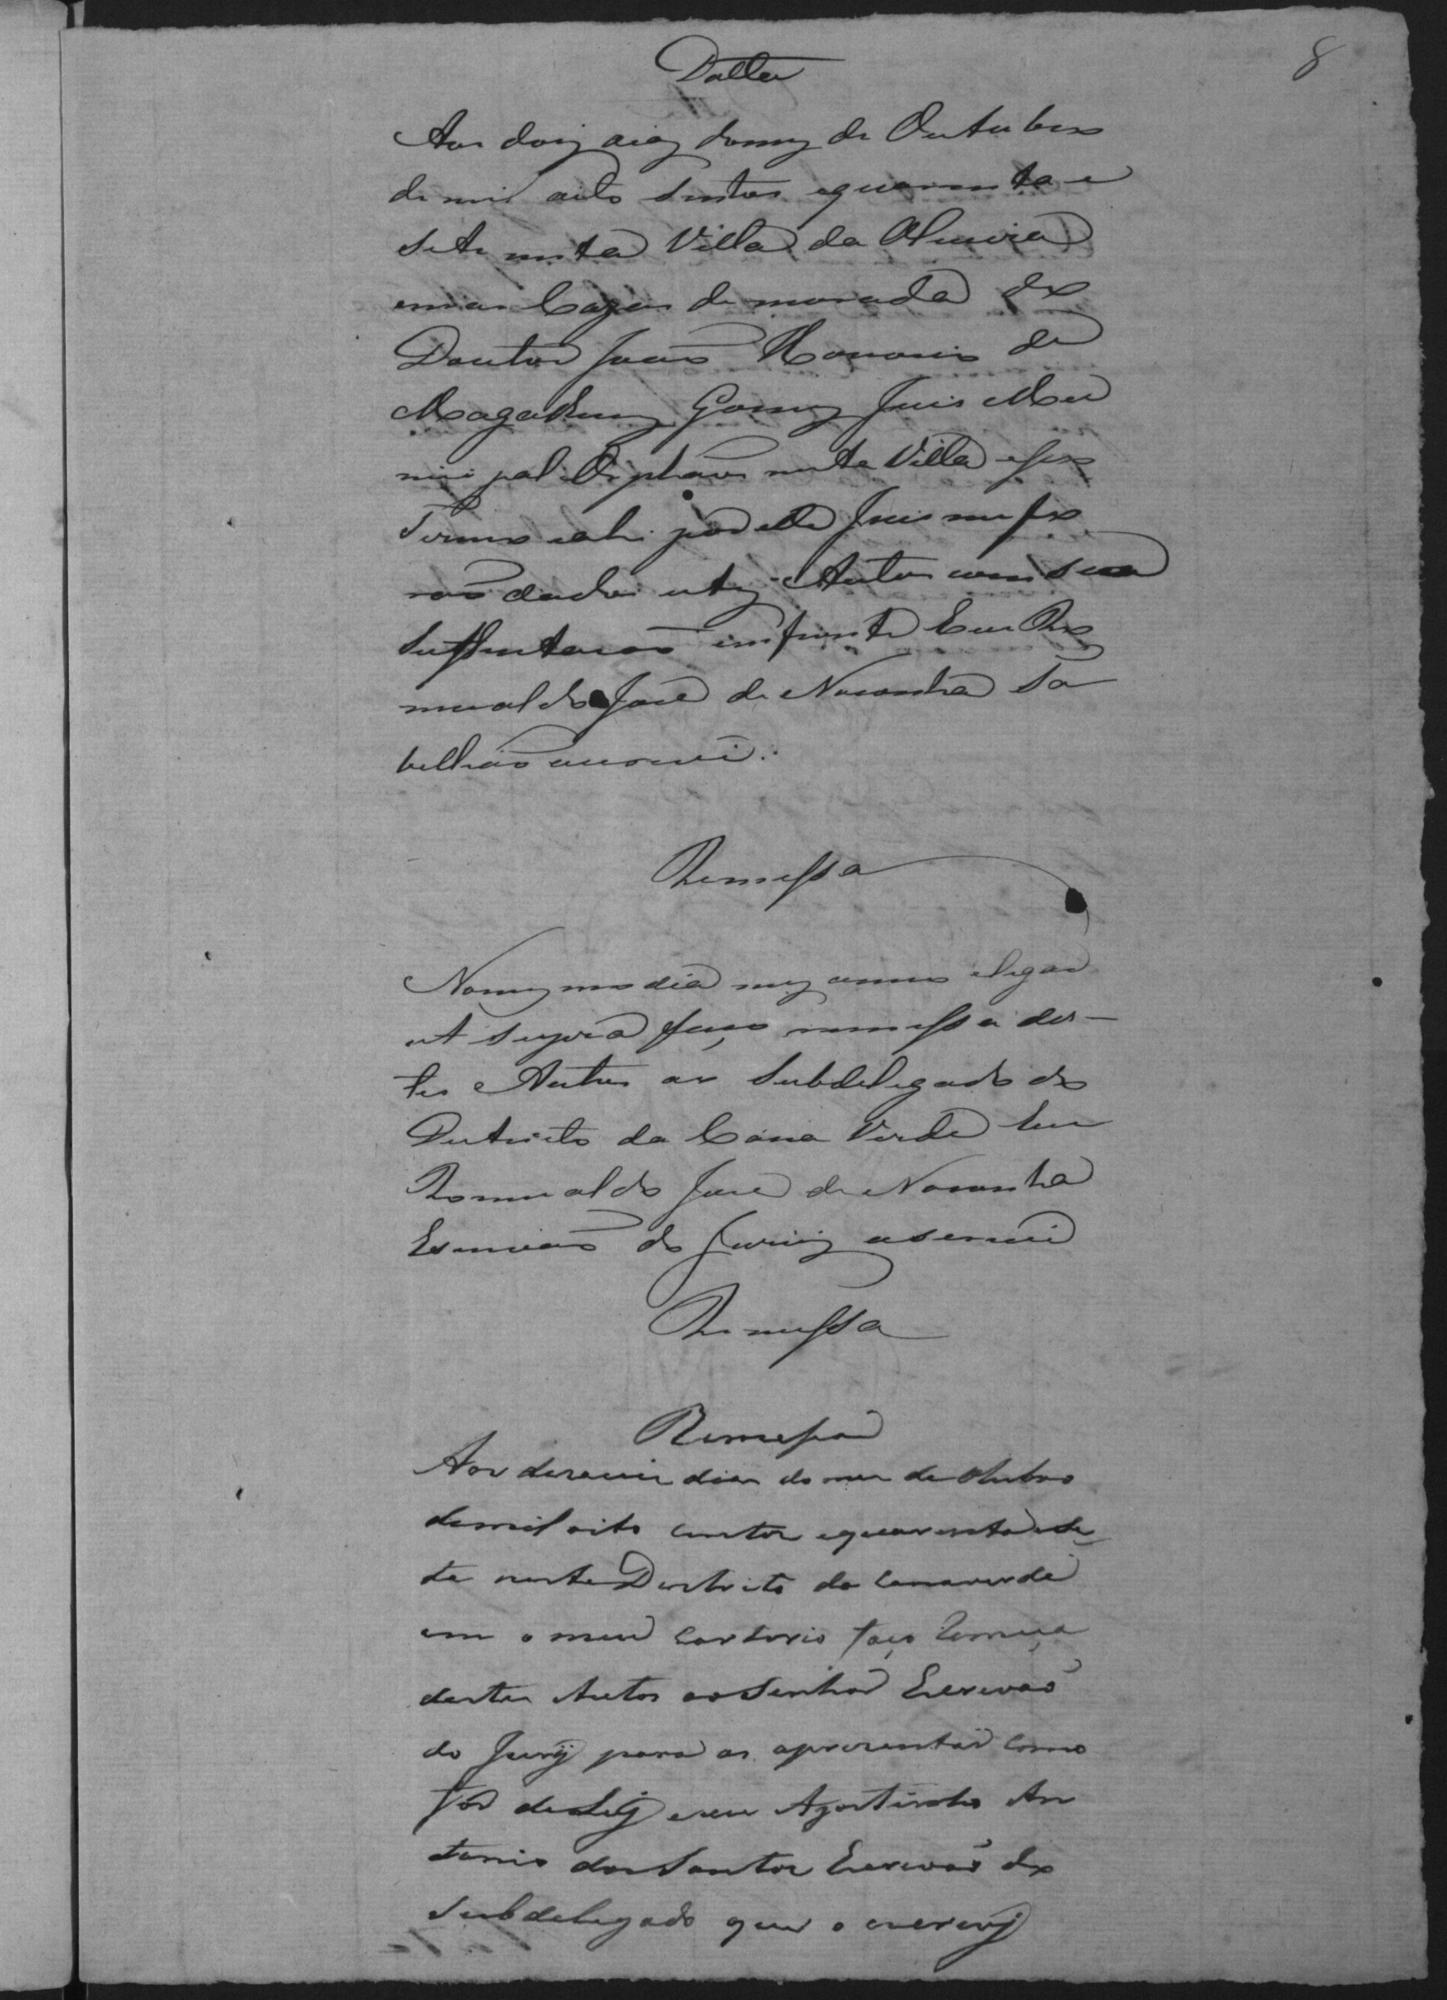 8
Datta
Aos dois dias domes de Outubro
de mil oito sentos equarenta e
sete nesta Villa da Oliveira
emas Cazas de morada do
Doutor João Honorio de
Magalhens Gomes Juis Mu
nicipal Orphaos nesta Villa eseu
Termo eahi por elle Juis me fo
rão dados estes Autos com sua
Sustentacão emfrente Eu Ro
mualdo José de Noronha Ta
belliao escrevi.
Remessa
Nomesmo dia mes anno elugar
ut supra faço remessa des-
tes Autos ao Subdelegado do
Destricto da Cana Verde Eu
Romualdo José de Noronha
Escrivão do Jurÿ escrevi
Remessa
Remessa
Aos dias do mes de Outubro
demil oito centos equarenta ese
te neste Destrito da Canaverde
em o meu Cartorio faço Remeça
destes Autos ao Senhor Escrivão
do Jurÿ para os aprezentar como
for de Leÿ e eu Agostinho An
tonio dos Santos Escrivão do
Subdelegado que o escrevÿ